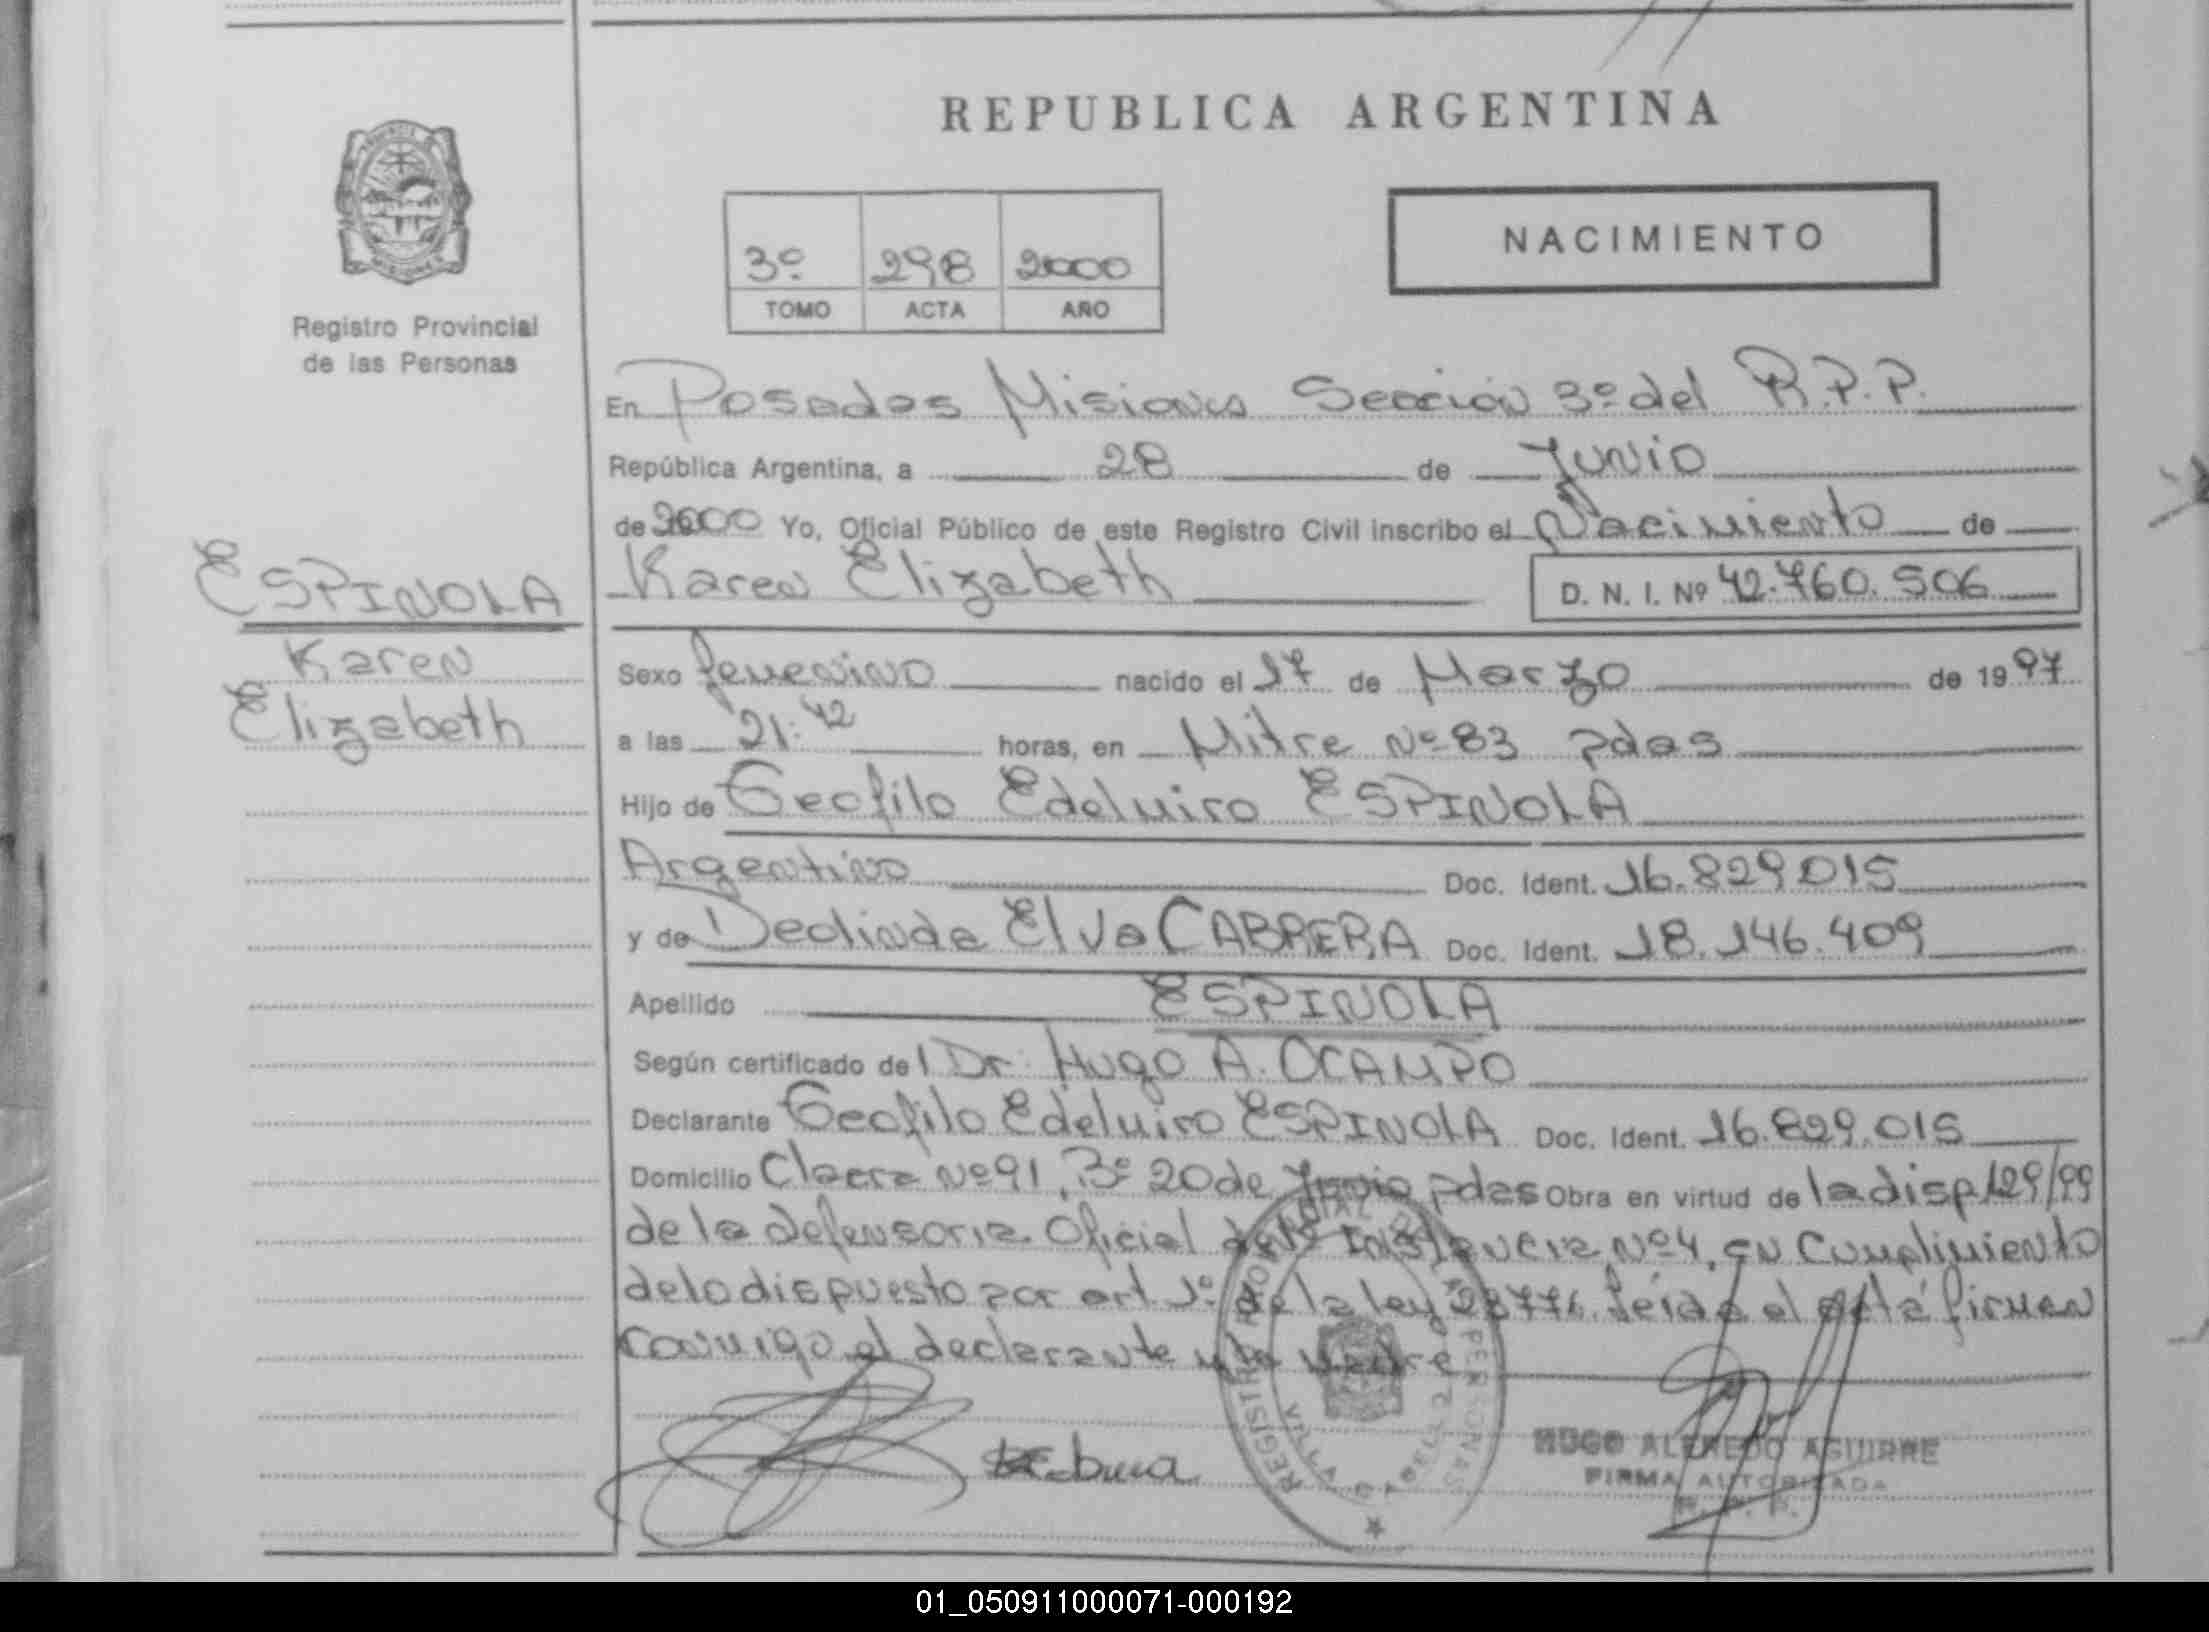 REPUBLICA ARGENTINA
NACIMIENTO
3º 298 2000
TOMO ACTA AÑO
Registro Provincial
de las Personas
En Posadas Misiones Sección 3º del R.P.P.
República Argentina, a 28 de Junio
de 2000 Yo, Oficial Público de este Registro Civil inscribo el Nacimiento de
Karen Elizabeth D. N. I. Nº 42.760.506
ESPINOLA
Karen
Elizabeth
Sexo femenino nacido el 17 de Marzo de 1997
a las 21:42 horas, en Mitre Nº 83 pdas
Hijo de Teofilo Edelmiro ESPINOLA
Argentino Doc. Ident. 16.829.015
y de Deolinda Elva CABRERA Doc. Ident. 18.146.409
Apellido ESPINOLA
Según certificado del Dr. Hugo A. OCAMPO
Declarante Teofilo Edelmiro ESPINOLA Doc. Ident. 16.829.015
Domicilio Nº 91, Bº 20 de Junio pdas Obra en virtud de la disp 129/99
de la defensoria Oficial de Instancia Nº 4, en Cumplimiento
de lo dispuesto por art 1º de la ley leída el acta firman
conmigo el declarante y la madre
REGISTRO PROVINCIAL DE LAS PERSONAS
VILLA CABELLO
HUGO ALFREDO AGUIRRE
FIRMA AUTORIZADA
R. P. P.
01_050911000071-000192